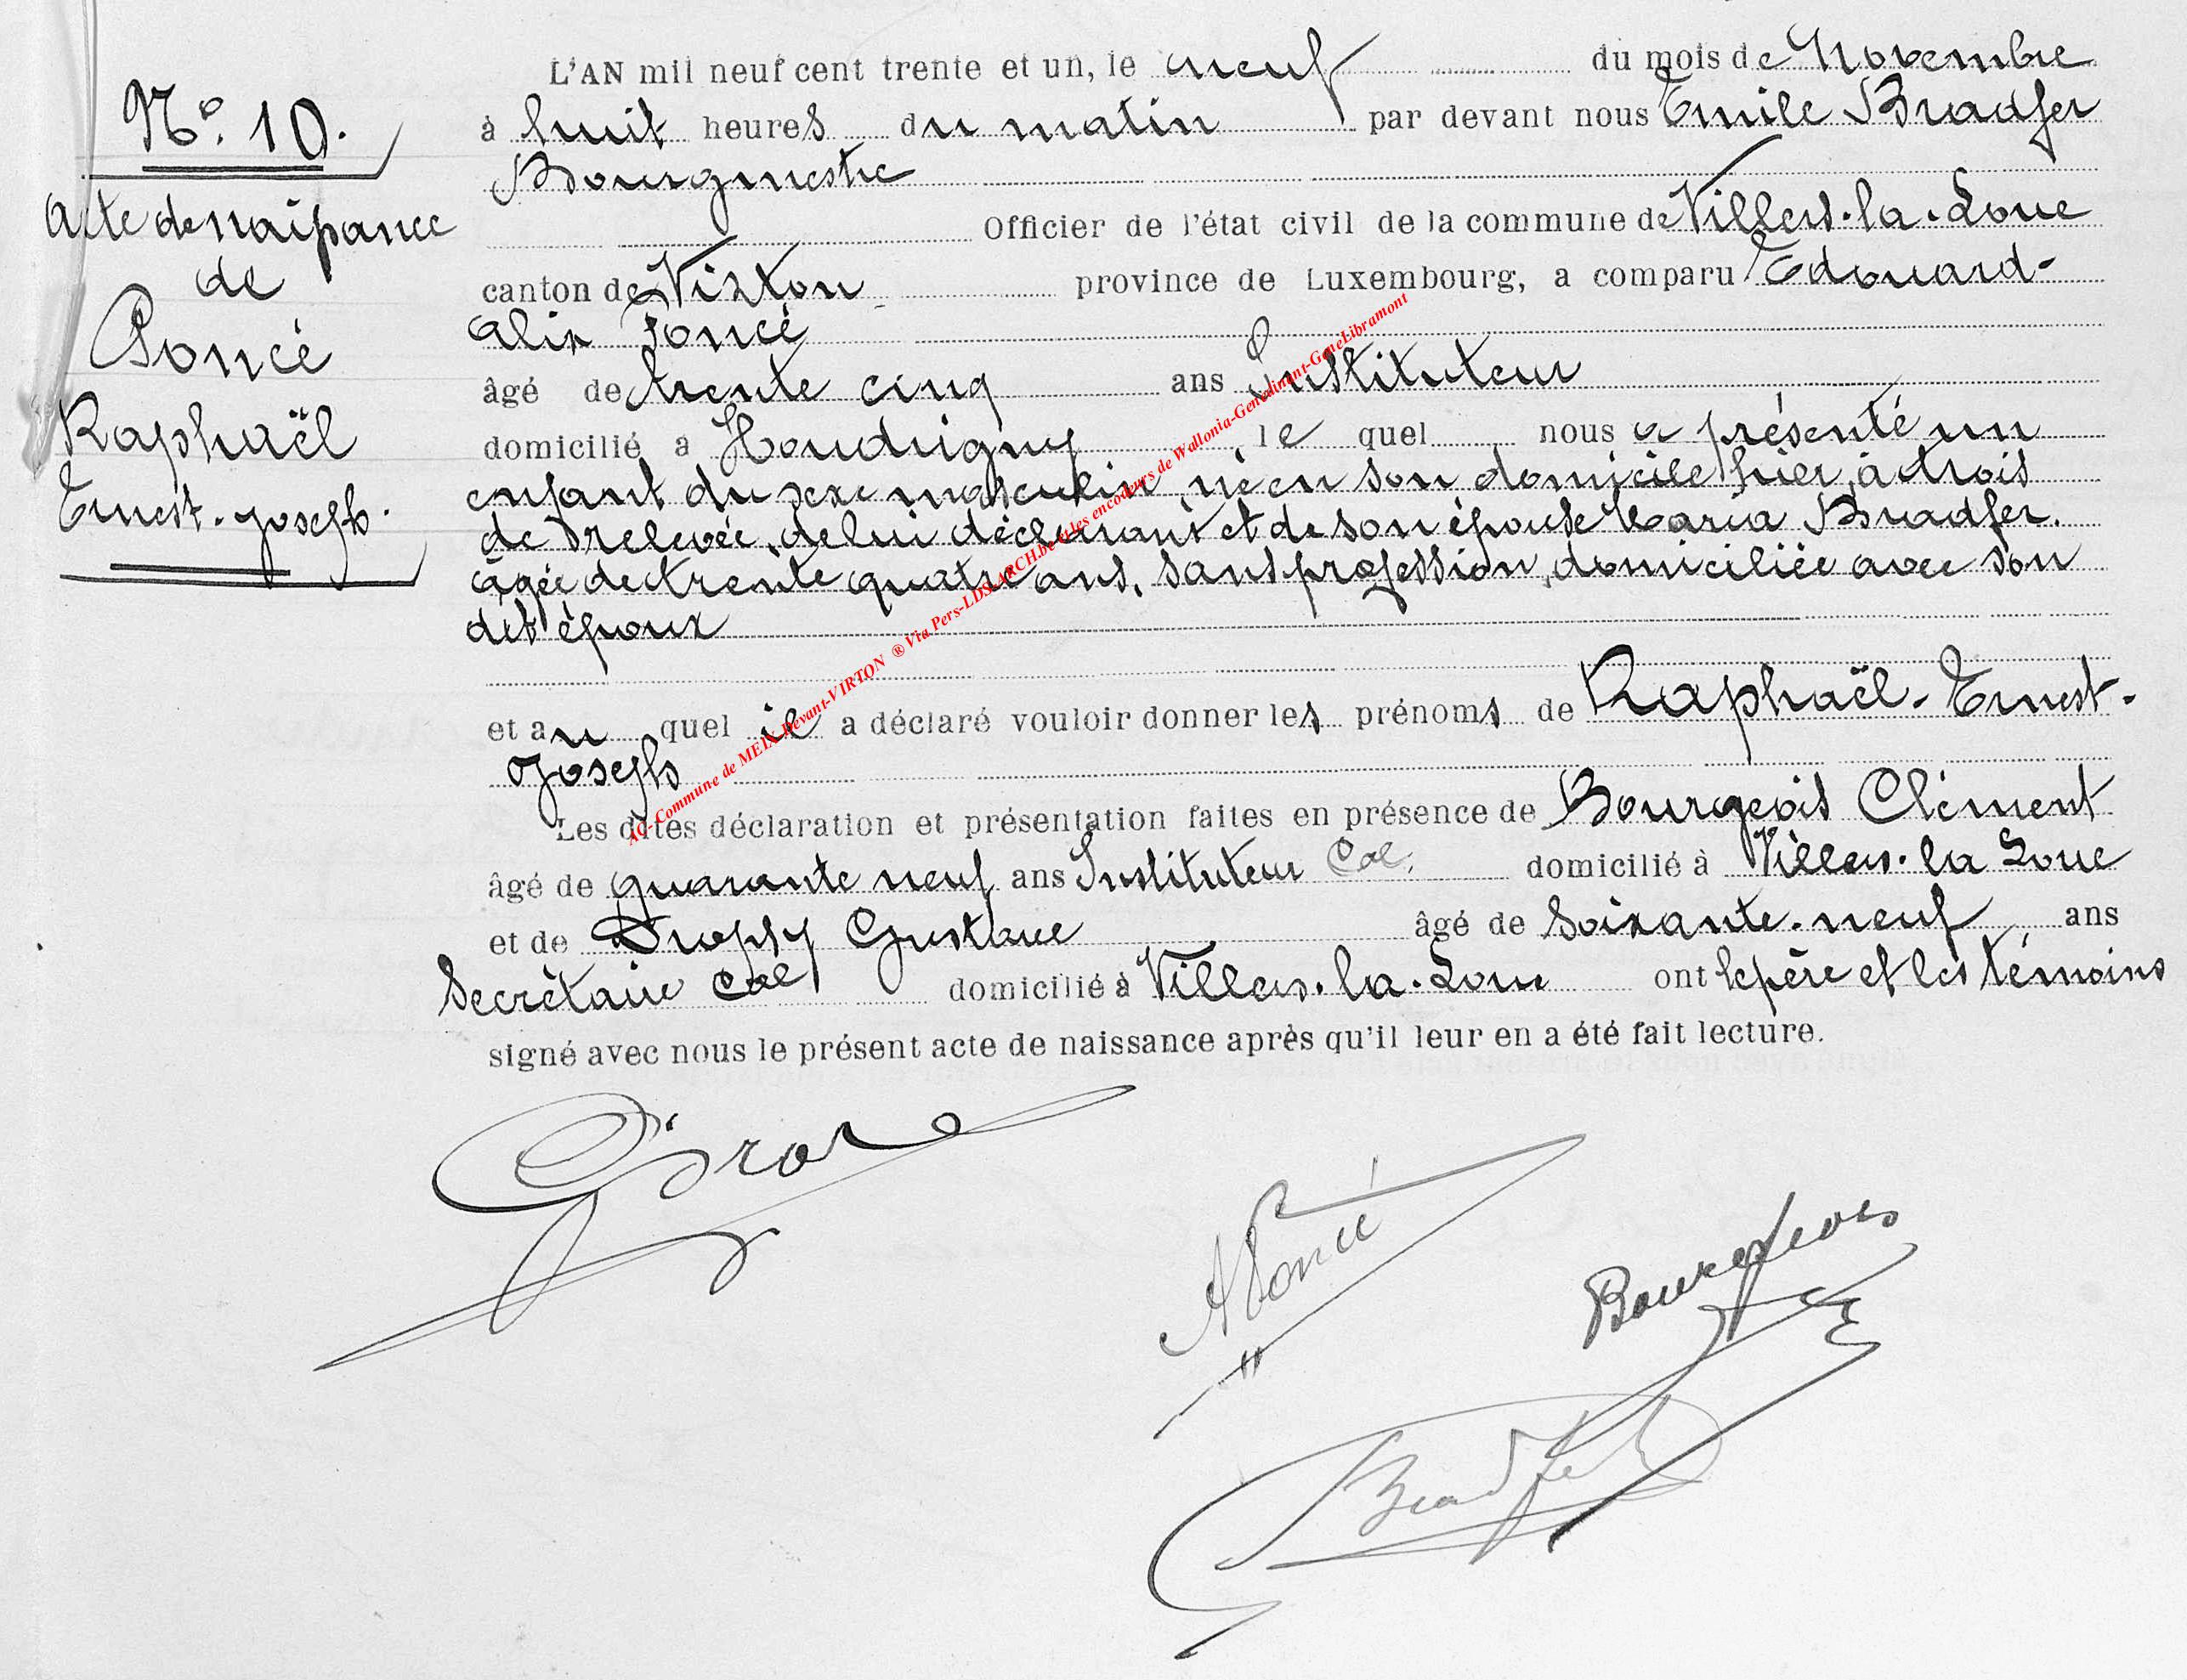 N° 10.
Acte de naissance
de
Poncé
Raphaël
Ernest-Joseph.
L'AN mil neuf cent trente et un, le neuf du mois de Novembre
à huit heures du matin par devant nous Emile Bradfer
Bourgmestre
Officier de l'état civil de la commune de Villers-la-Loue
canton de Virton province de Luxembourg, a comparu Edouard-
Alix Poncé
âgé de trente cinq ans Instituteur
domicilié à Houdrigny, le quel nous a présenté un
enfant du sexe masculin, né en son domicile hier, à trois
de relevée, de lui déclarant et de son épouse Maria Bradfer.
âgée de trente quatre ans, sans profession, domiciliée avec son
dit époux
et au quel il a déclaré vouloir donner les prénoms de Raphaël-Ernest-
Joseph
Les dites déclaration et présentation faites en présence de Bourgeois Clément
âgé de quarante neuf ans Instituteur Cal. domicilié à Villers-la Loue
et de Dropsy Gustave âgé de soixante-neuf ans
Secrétaire Cal domicilié à Villers-la-Loue ont le père et les témoins
signé avec nous le présent acte de naissance après qu'il leur en a été fait lecture.
A Poncé
Bourgeois
Bradfer
AC-Commune de MEIX-Devant-VIRTON ® Via Pers-LDS-ARCH.be et les encodeurs de Wallonia-Genedinant-GeneLibramont